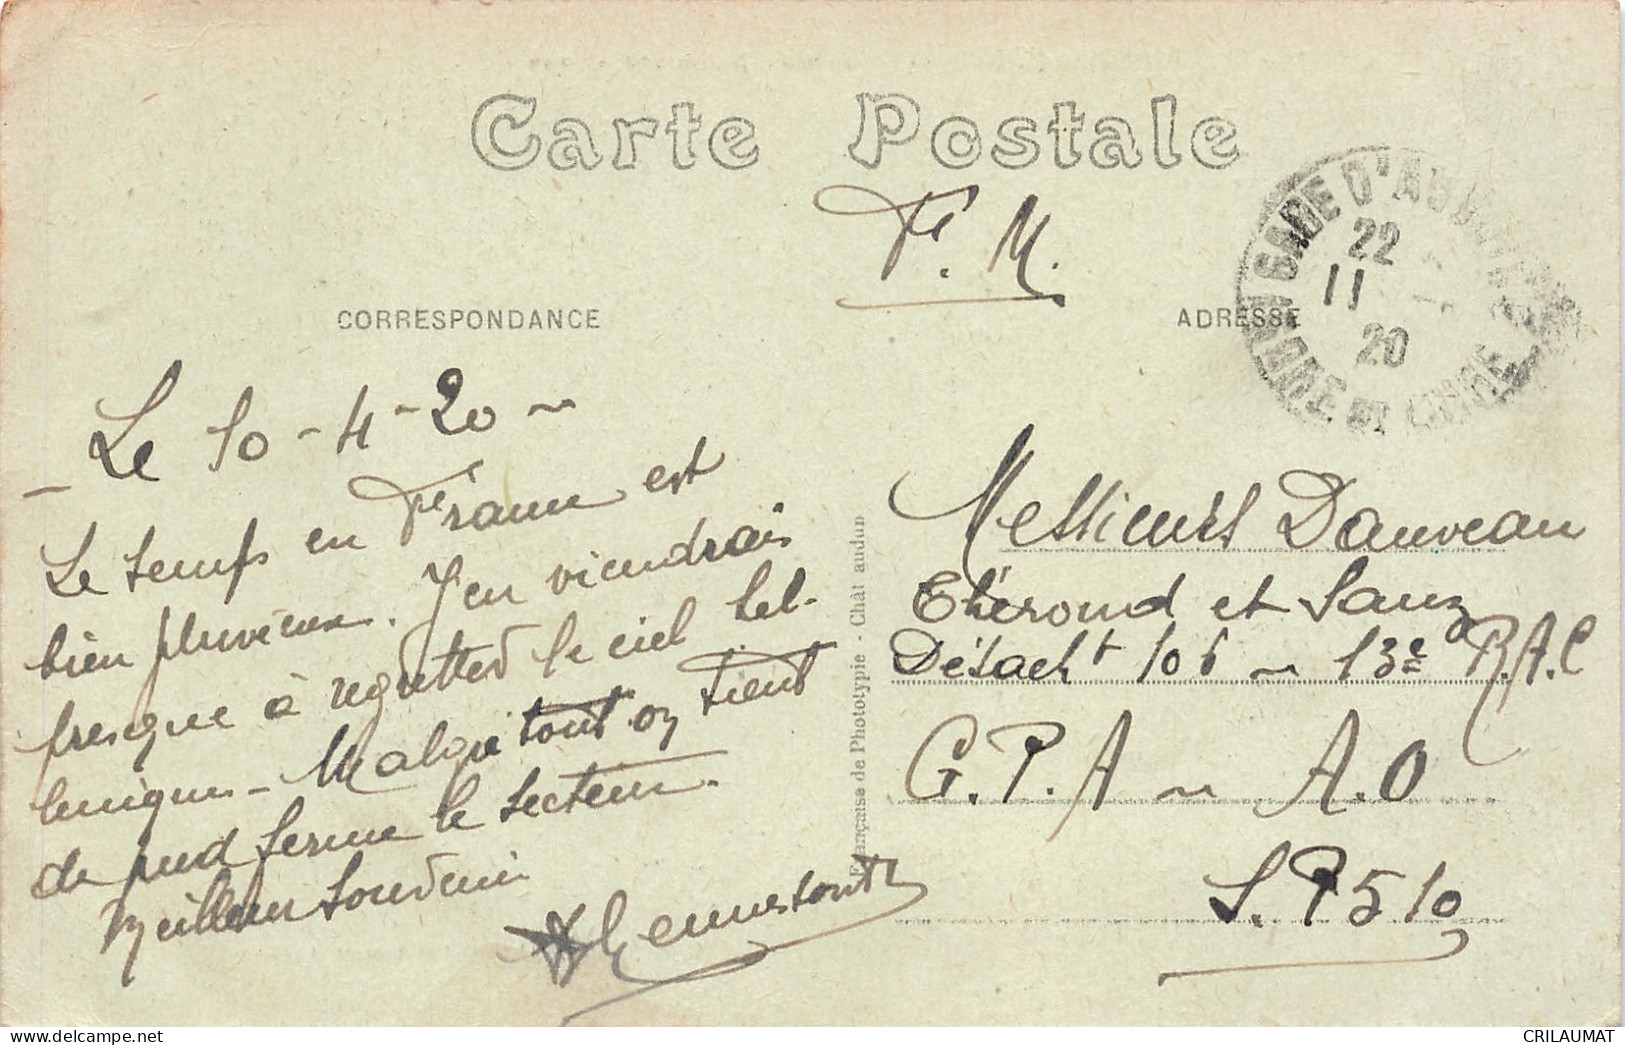 Carte Postale
F. M.
CORRESPONDANCE
ADRESSE
GARE D'AUDUN
22
11
20
Le 10-4-20
Le temps en France est
bien pluvieux. J'en viendrais
presque à regretter le ciel bel-
lenique. Malgré tout on tient
de pied ferme le secteur.
Meilleur Souvenir
Française de Phototypie - Chât audun
Messieurs Dauveau
Thérond et Sanz
Détacht 106 ~ 13e R.A.C
G.P.A ~ A.O
S.P 510
CRILAUMAT
delcampe.net